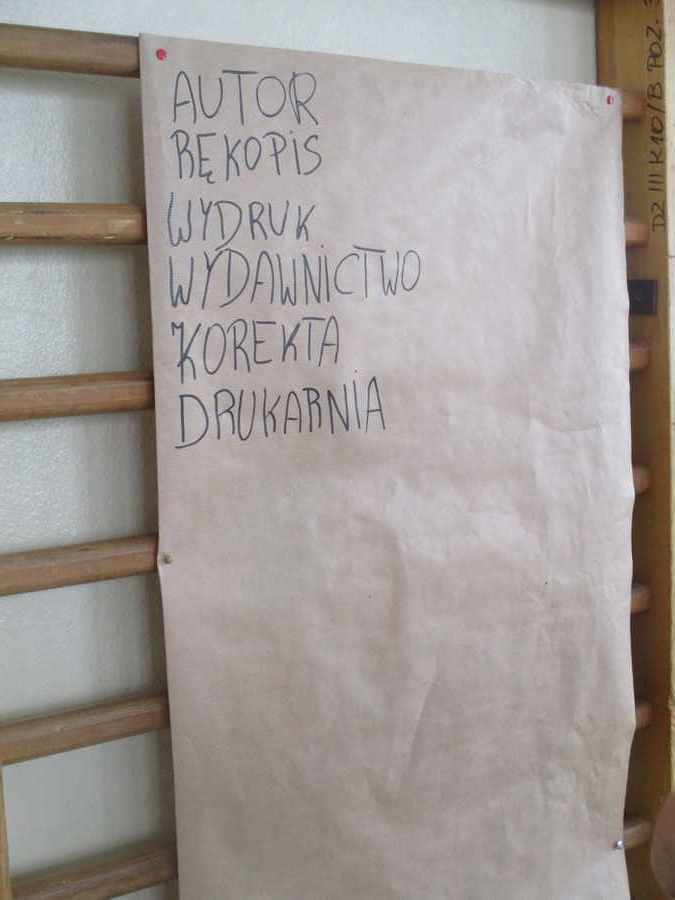 AUTOR
RĘKOPIS
WYDRUK
WYDAWNICTWO
KOREKTA
DRUKARNIA
DZ III K10/B POZ.